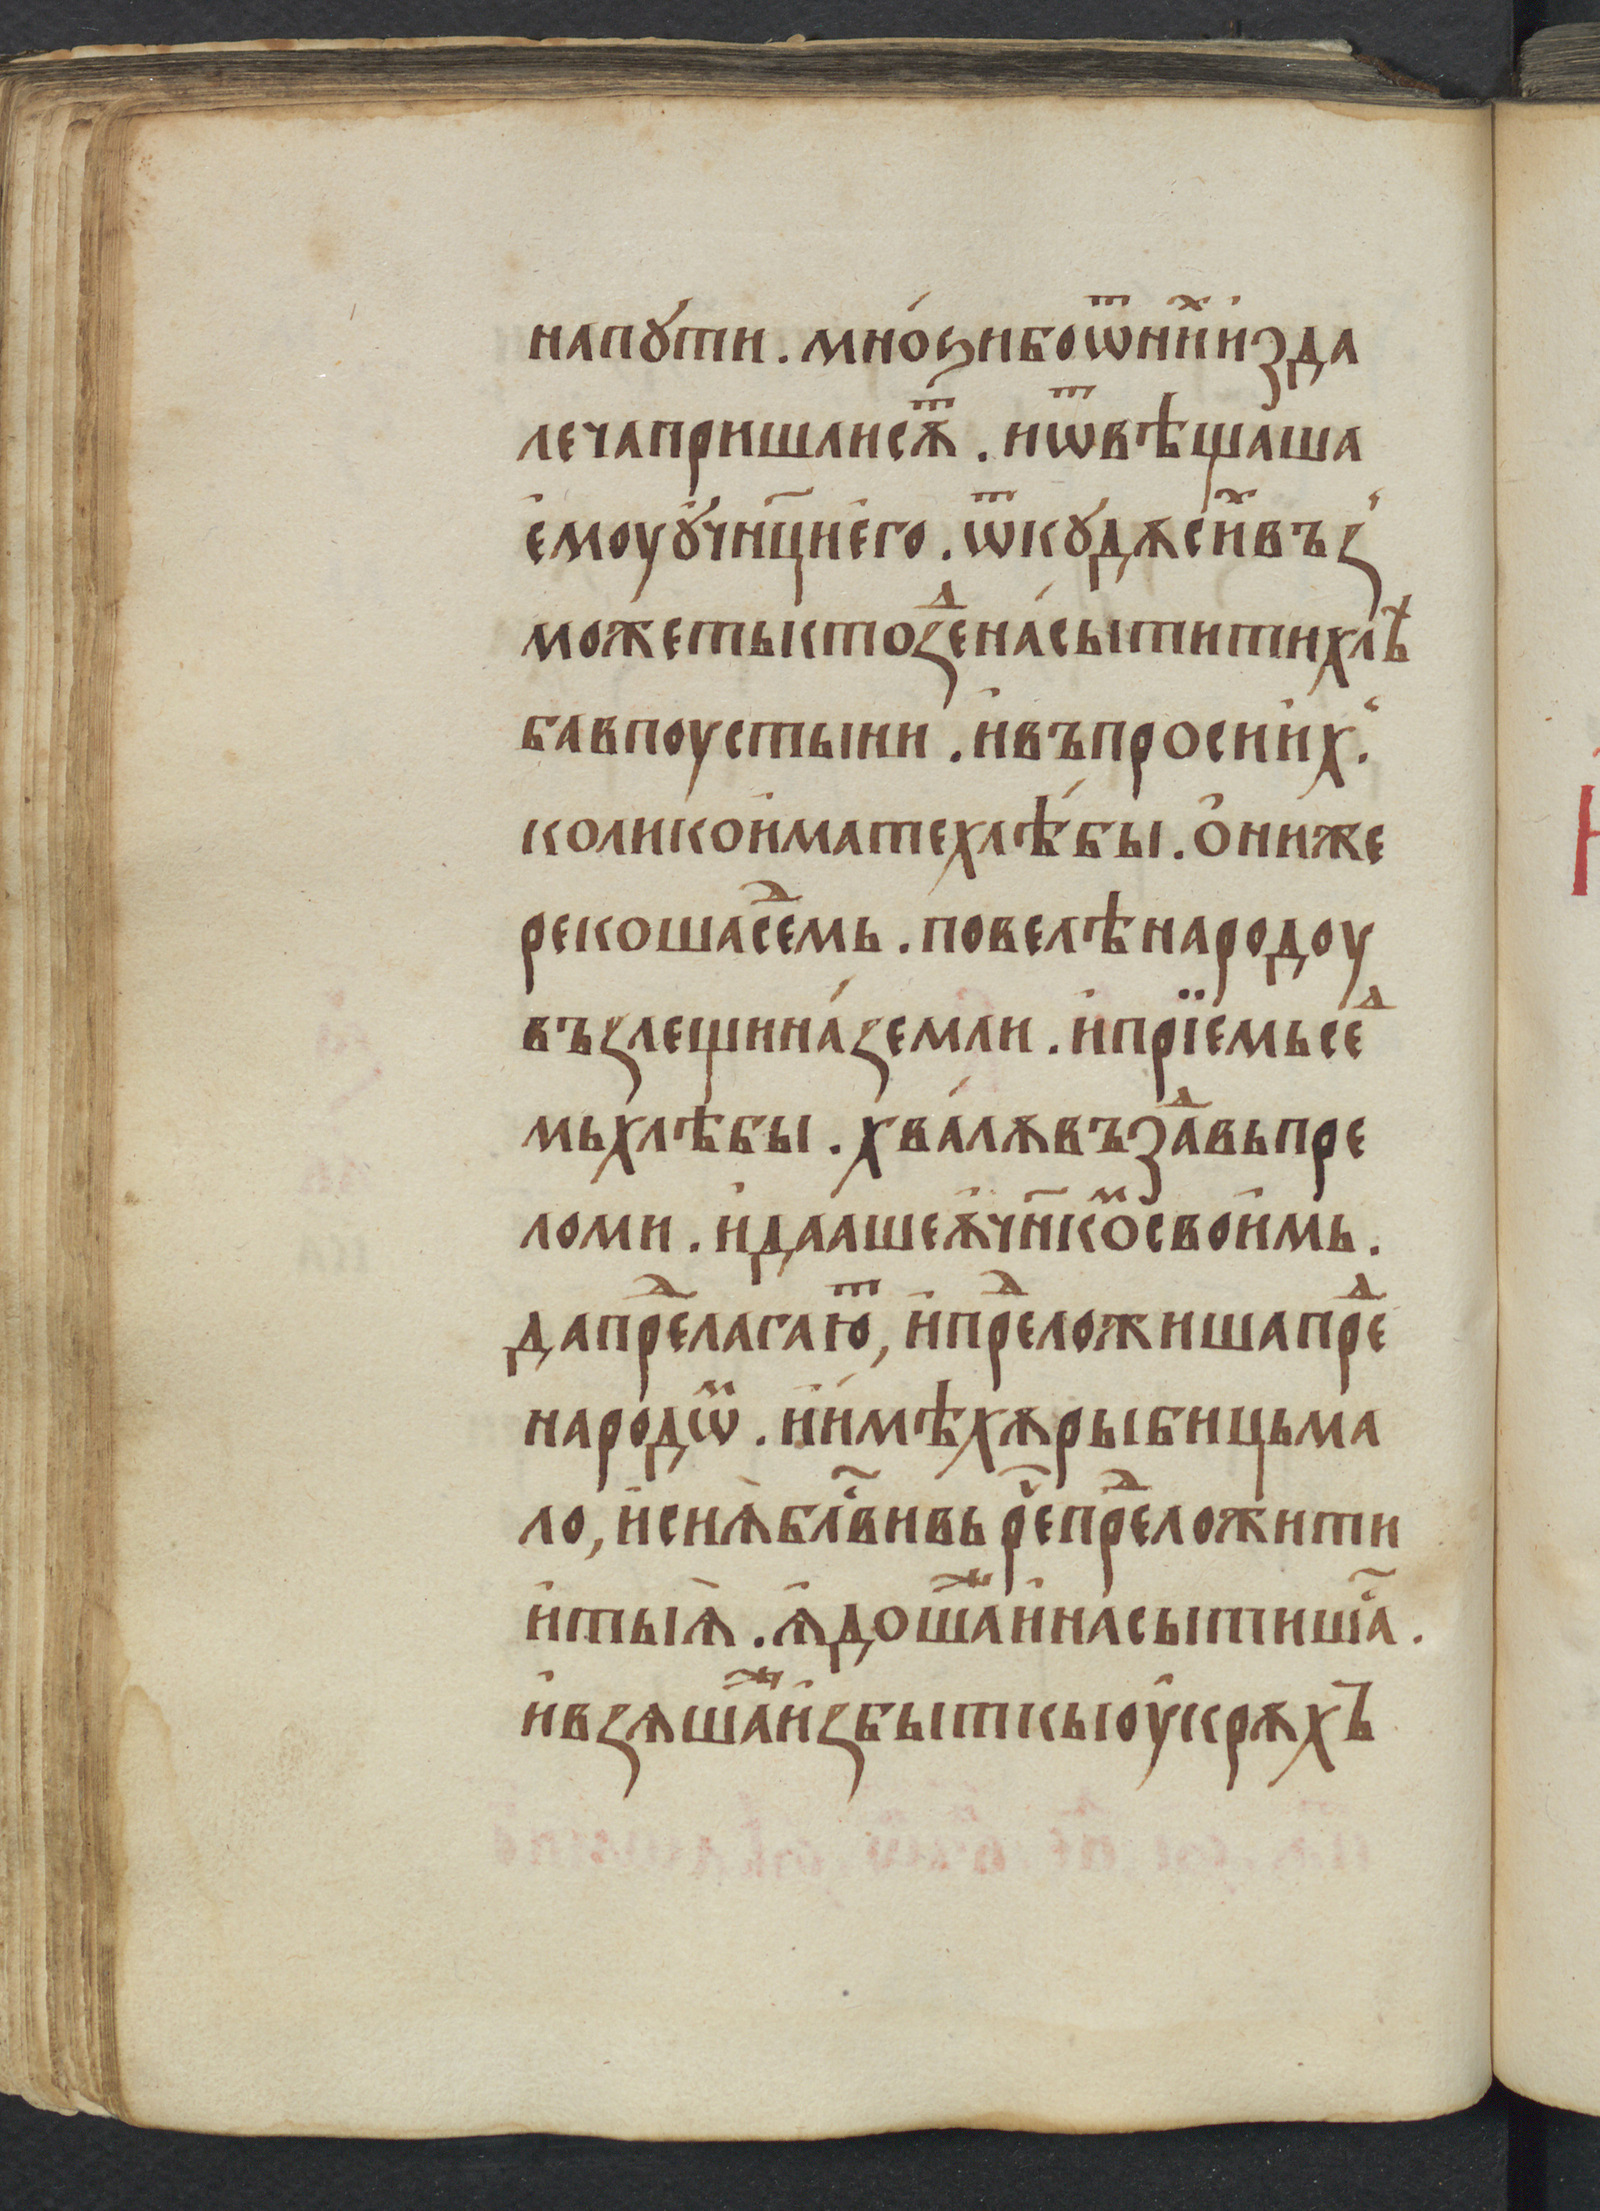 напꙋти . мно́ѕибоѿни́ⷯиꙁда
лечапришлисѫⷮ . иѿвѣщаша
е҆моуꙋ҆чн҃цие҆го . ѿкꙋдѫси́ⷯвъꙁ
можетьктоꙁⷣена́сытитихлѣ
бавпоустыни . и҆въпросии҆х .
коликои҆матехлѣ́бы . о҆ниже
рекошасеⷣмь . повелѣнародоу
въꙁлещина́ꙁемли . и҆прїе҆мьсеⷣ
мьхлѣбы . хва́лѫвъꙁⷣавьпре
ломи . и҆даашеѫ҆чн҃коⷨсвои҆мь .
дапреⷣлагаюⷮ, и҆преⷣложишапреⷣ
народѡⷨ . ии҆мѣхѫрыбицьма
ло, и҆сиѧ҆блⷭ҇вивь рⷱ҇епреⷣложити
и҆тыѧ҆ . ѧ҆дошаⷤи҆насытишⷭ҇а .
и҆вꙁѧшаⷤи҆ꙁбыткыоу҆крѫхъ